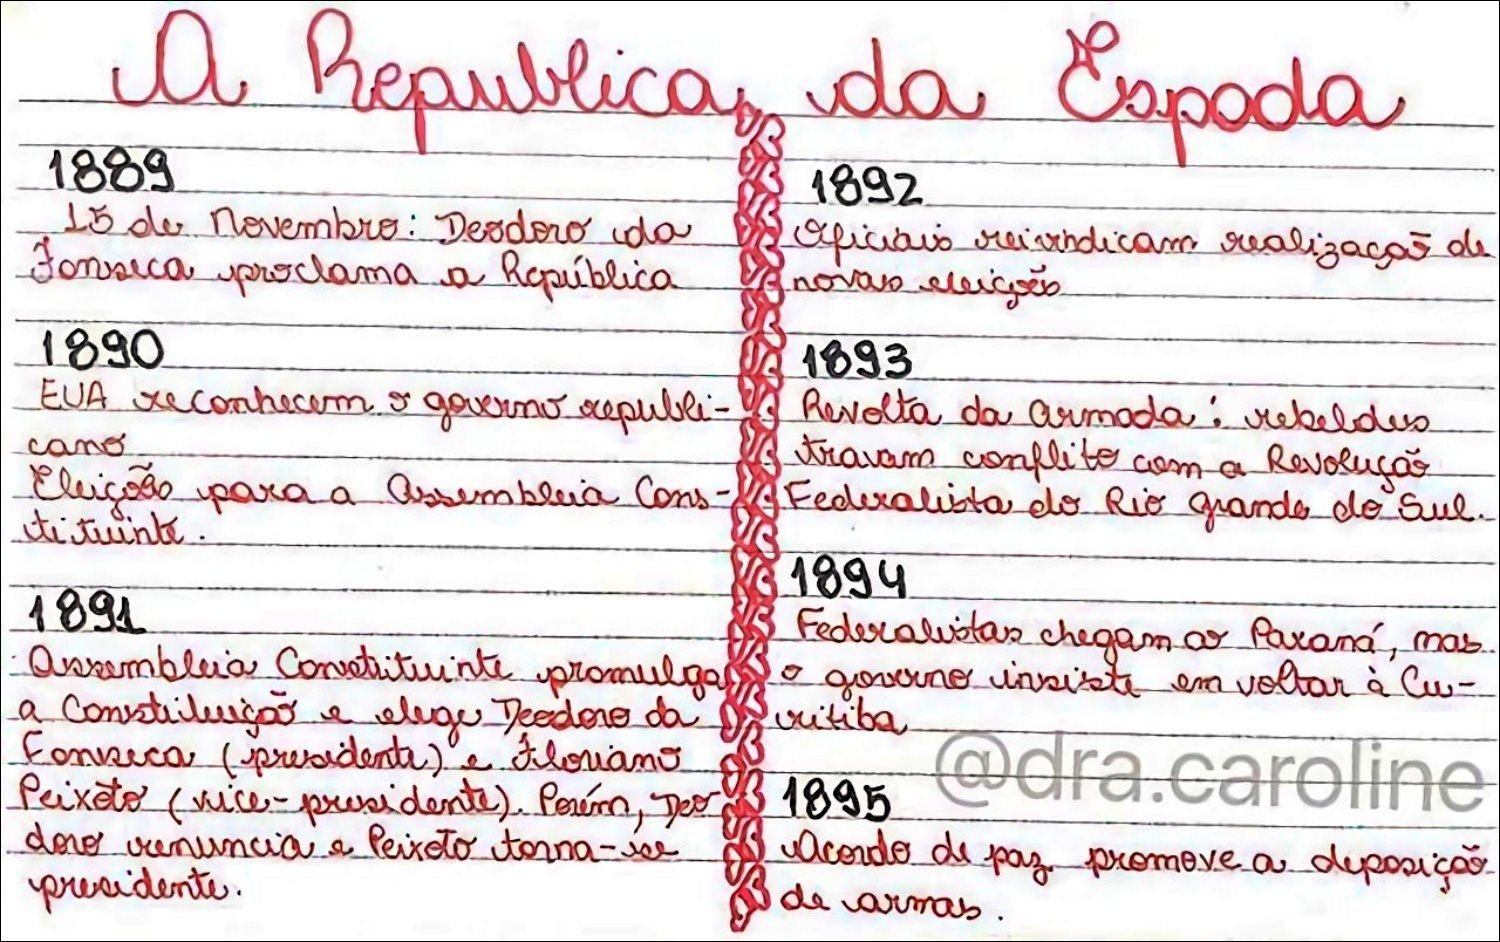 A Republica da Espada
1889
15 de Novembro: Deodoro da
Fonseca proclama a República
1890
EUA reconhecem o governo republi-
cano
Eleição para a Assembleia Cons-
tituinte.
1891
Assembleia Constituinte promulga
a Constituição e elege Deodoro da
Fonseca (presidente) e Floriano
Peixoto (vice-presidente). Porém, Deo-
doro renuncia e Peixoto torna-se
presidente.
1892
Oficiais reivindicam realização de
novas eleições
1893
Revolta da Armada: rebeldes
travam conflito com a Revolução
Federalista do Rio Grande do Sul.
1894
Federalistas chegam ao Paraná, mas
o governo insiste em voltar à Cu-
ritiba
1895
Acordo de paz promove a deposição
de armas.
@dra.caroline